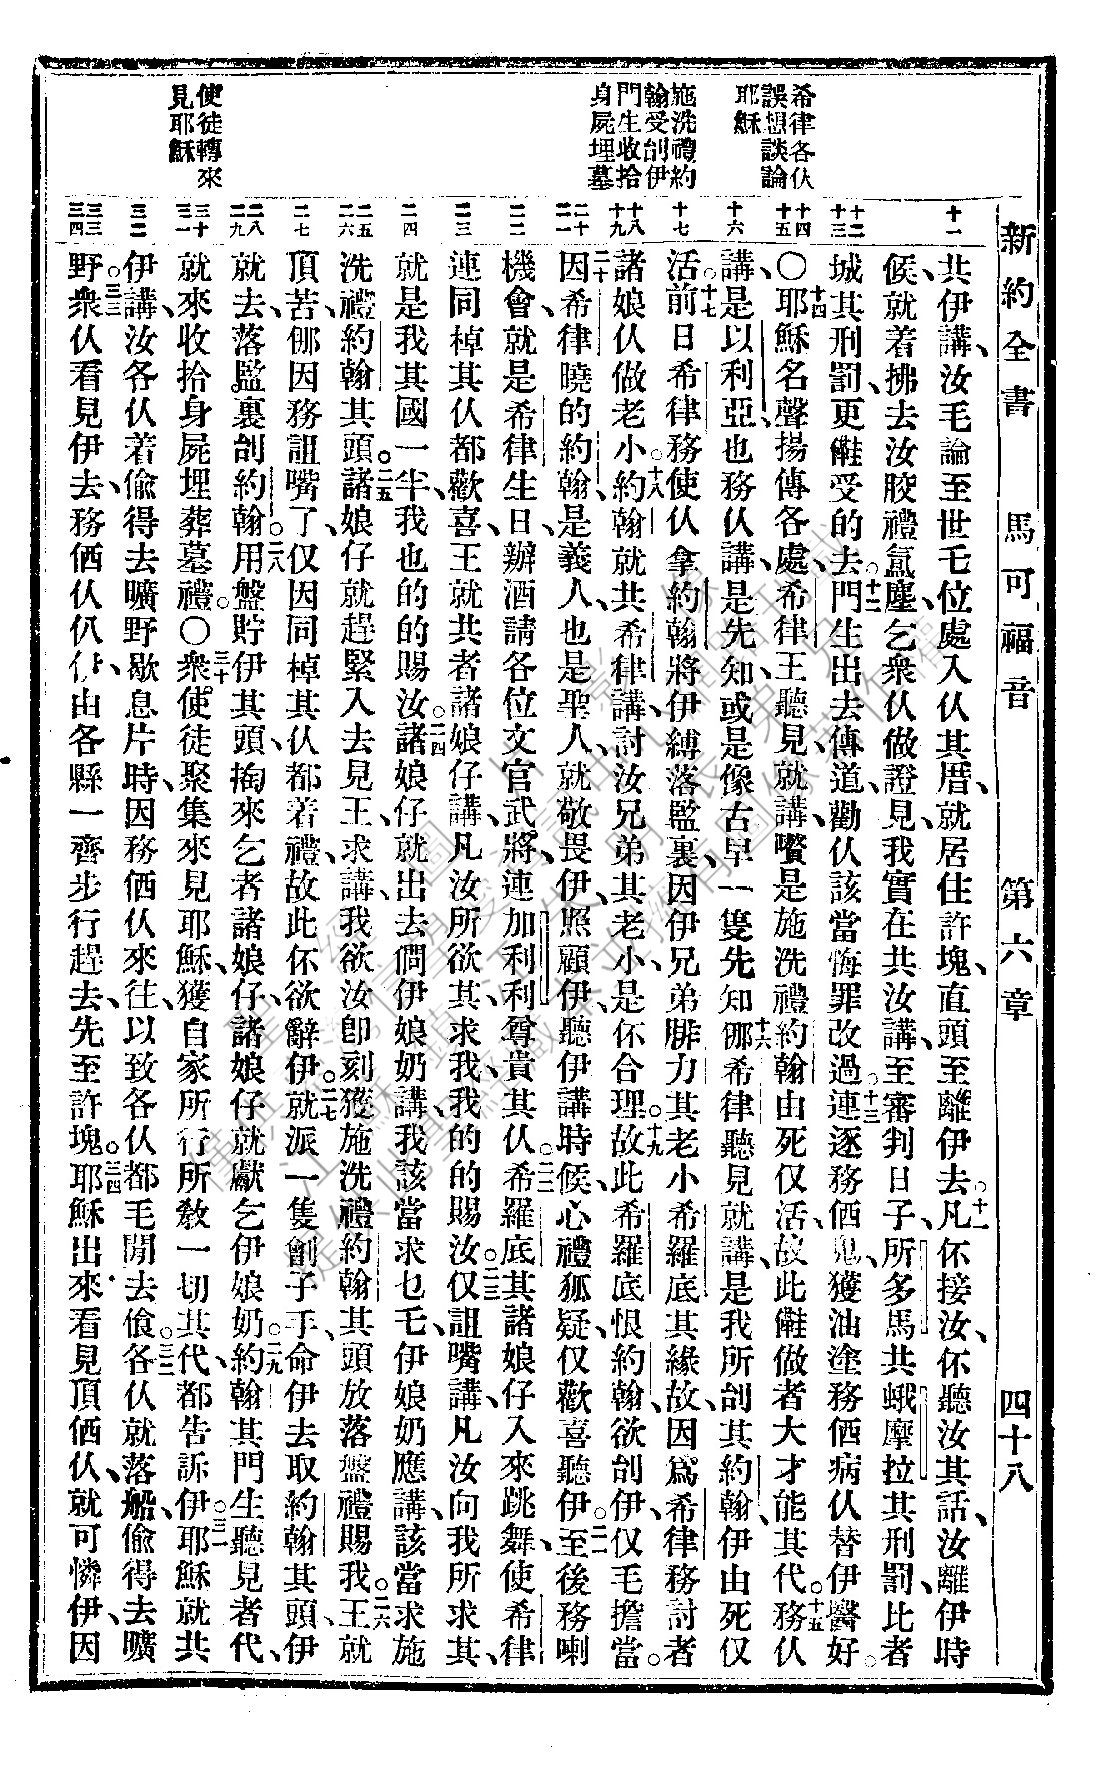 新約全書　馬可福音　第六章　四十八
希律各伙
誤想談論
耶穌
施洗禮約
翰受刣伊
門生收拾
身屍埋墓
使徒轉來
見耶穌
十一
十二
十三
十四
十五
十六
十七
十八
十九
二十
二一
二二
二三
二四
二五
二六
二七
二八
二九
三十
三一
三二
三三
三四
共伊講、汝毛論至世毛位處入伙其厝、就居住許塊、直頭至離伊去。十一凡伓接汝、伓聽汝其話、汝離伊時
候、就着拂去汝骹禮氳塵、乞衆伙做證見、我實在共汝講、至審判日子、所多馬共蛾摩拉其刑罰、比者
城其刑罰、更儺受的去。十二門生出去傳道、勸伙該當悔罪改過。十三連逐務価鬼、獲油塗務価病伙、替伊醫好。
○十四耶穌名聲揚傳各處、希律王聽見、就講、嚽是施洗禮約翰由死仅活、故此儺做者大才能其代。十五務伙
講、是以利亞、也務伙講、是先知、或是像古早一隻先知。十六𠲥希律聽見就講、是我所刣其約翰、伊由死仅
活。十七前日希律務使伙拿約翰、將伊縛落監裏、因伊兄弟腓力其老小希羅底其緣故、因爲希律務討者
諸娘伙做老小。十八約翰就共希律講、討汝兄弟其老小、是伓合理。十九故此希羅底恨約翰、欲刣伊、仅毛擔當。
二十因希律曉的約翰是義人、也是聖人、就敬畏伊、照顧伊、聽伊講時候、心禮狐疑、仅歡喜聽伊。二一至後務喇
機會、就是希律生日、辦酒請各位文官武將、連加利利尊貴其伙。二二希羅底其諸娘仔入來跳舞、使希律
連同棹其伙都歡喜、王就共者諸娘仔講、凡汝所欲其、求我、我的的賜汝。二三仅詛嘴講、凡汝向我所求其、
就是我其國一半、我也的的賜汝。二四諸娘仔就出去、問伊娘奶講、我該當求乜乇、伊娘奶應講、該當求施
洗禮約翰其頭。二五諸娘仔就趕緊入去見王、求講、我欲汝即刻獲施洗禮約翰其頭放落盤禮賜我。二六王就
頂苦、𠲥因務詛嘴了、仅因同棹其伙都着禮、故此伓欲辭伊。二七就派一隻劊子手、命伊去取約翰其頭、伊
就去、落監裏刣約翰。二八用盤貯伊其頭、掏來乞者諸娘仔、諸娘仔就獻乞伊娘奶。二九約翰其門生聽見者代、
就來收拾身屍、埋葬墓禮。○三十衆使徒聚集來見耶穌、獲自家所行所敎一切其代、都告訴伊。三一耶穌就共
伊講、汝各伙着偷得去曠野歇息片時、因務価伙來往、以致各伙都毛閒去飡。三二各伙就落船、偷得去曠
野。三三衆伙看見伊去、務価伙仈伊、由各縣一齊步行趕去、先至許塊。三四耶穌出來、看見頂価伙、就可憐伊、因